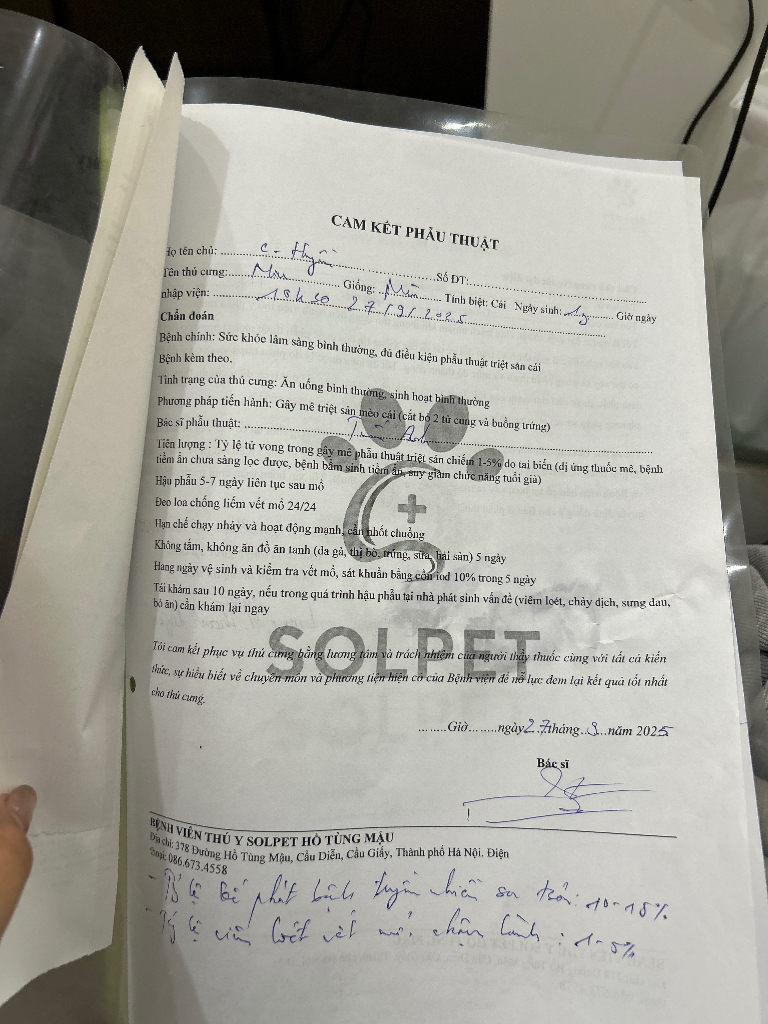 CAM KẾT PHẪU THUẬT
Họ tên chủ: C. Huyền Số ĐT:
Tên thú cưng: Giống: Tính biệt: Cái Ngày sinh: 1y Giờ ngày
nhập viện: 18h20 27/9/2025
Chẩn đoán
Bệnh chính: Sức khỏe lâm sàng bình thường, đủ điều kiện phẫu thuật triệt sản cái
Bệnh kèm theo.
Tình trạng của thú cưng: Ăn uống bình thường, sinh hoạt bình thường
Phương pháp tiến hành: Gây mê triệt sản mèo cái (cắt bỏ 2 tử cung và buồng trứng)
Bác sĩ phẫu thuật: Anh
Tiên lượng : Tỷ lệ tử vong trong gây mê phẫu thuật triệt sản chiếm 1-5% do tai biến (dị ứng thuốc mê, bệnh
tiềm ẩn chưa sàng lọc được, bệnh bẩm sinh tiềm ẩn, suy giảm chức năng tuổi già)
Hậu phẫu 5-7 ngày liên tục sau mổ
Đeo loa chống liếm vết mổ 24/24
Hạn chế chạy nhảy và hoạt động mạnh, cần nhốt chuồng
Không tắm, không ăn đồ ăn tanh (da gà, thị bò, trứng, sữa, hải sản) 5 ngày
Hàng ngày vệ sinh và kiểm tra vết mổ, sát khuẩn bằng cồn iod 10% trong 5 ngày
Tái khám sau 10 ngày, nếu trong quá trình hậu phẫu tại nhà phát sinh vấn đề (viêm loét, chảy dịch, sưng đau,
bỏ ăn) cần khám lại ngay
SOLPET
Tôi cam kết phục vụ thú cưng bằng lương tâm và trách nhiệm của người thầy thuốc cùng với tất cả kiến
thức, sự hiểu biết về chuyên môn và phương tiện hiện có của Bệnh viện để nỗ lực đem lại kết quả tốt nhất
cho thú cưng.
........Giờ........ngày 27 tháng 9 năm 2025
Bác sĩ
BỆNH VIÊN THÚ Y SOLPET HỒ TÙNG MẬU
Địa chỉ: 378 Đường Hồ Tùng Mậu, Cầu Diễn, Cầu Giấy, Thành phố Hà Nội. Điện
thoại: 086.673.4558
- Tỷ lệ kế phát bệnh truyền nhiễm sau : 10-15%
- Tỷ lệ viêm loét vết mổ, chậm lành : 1-5%